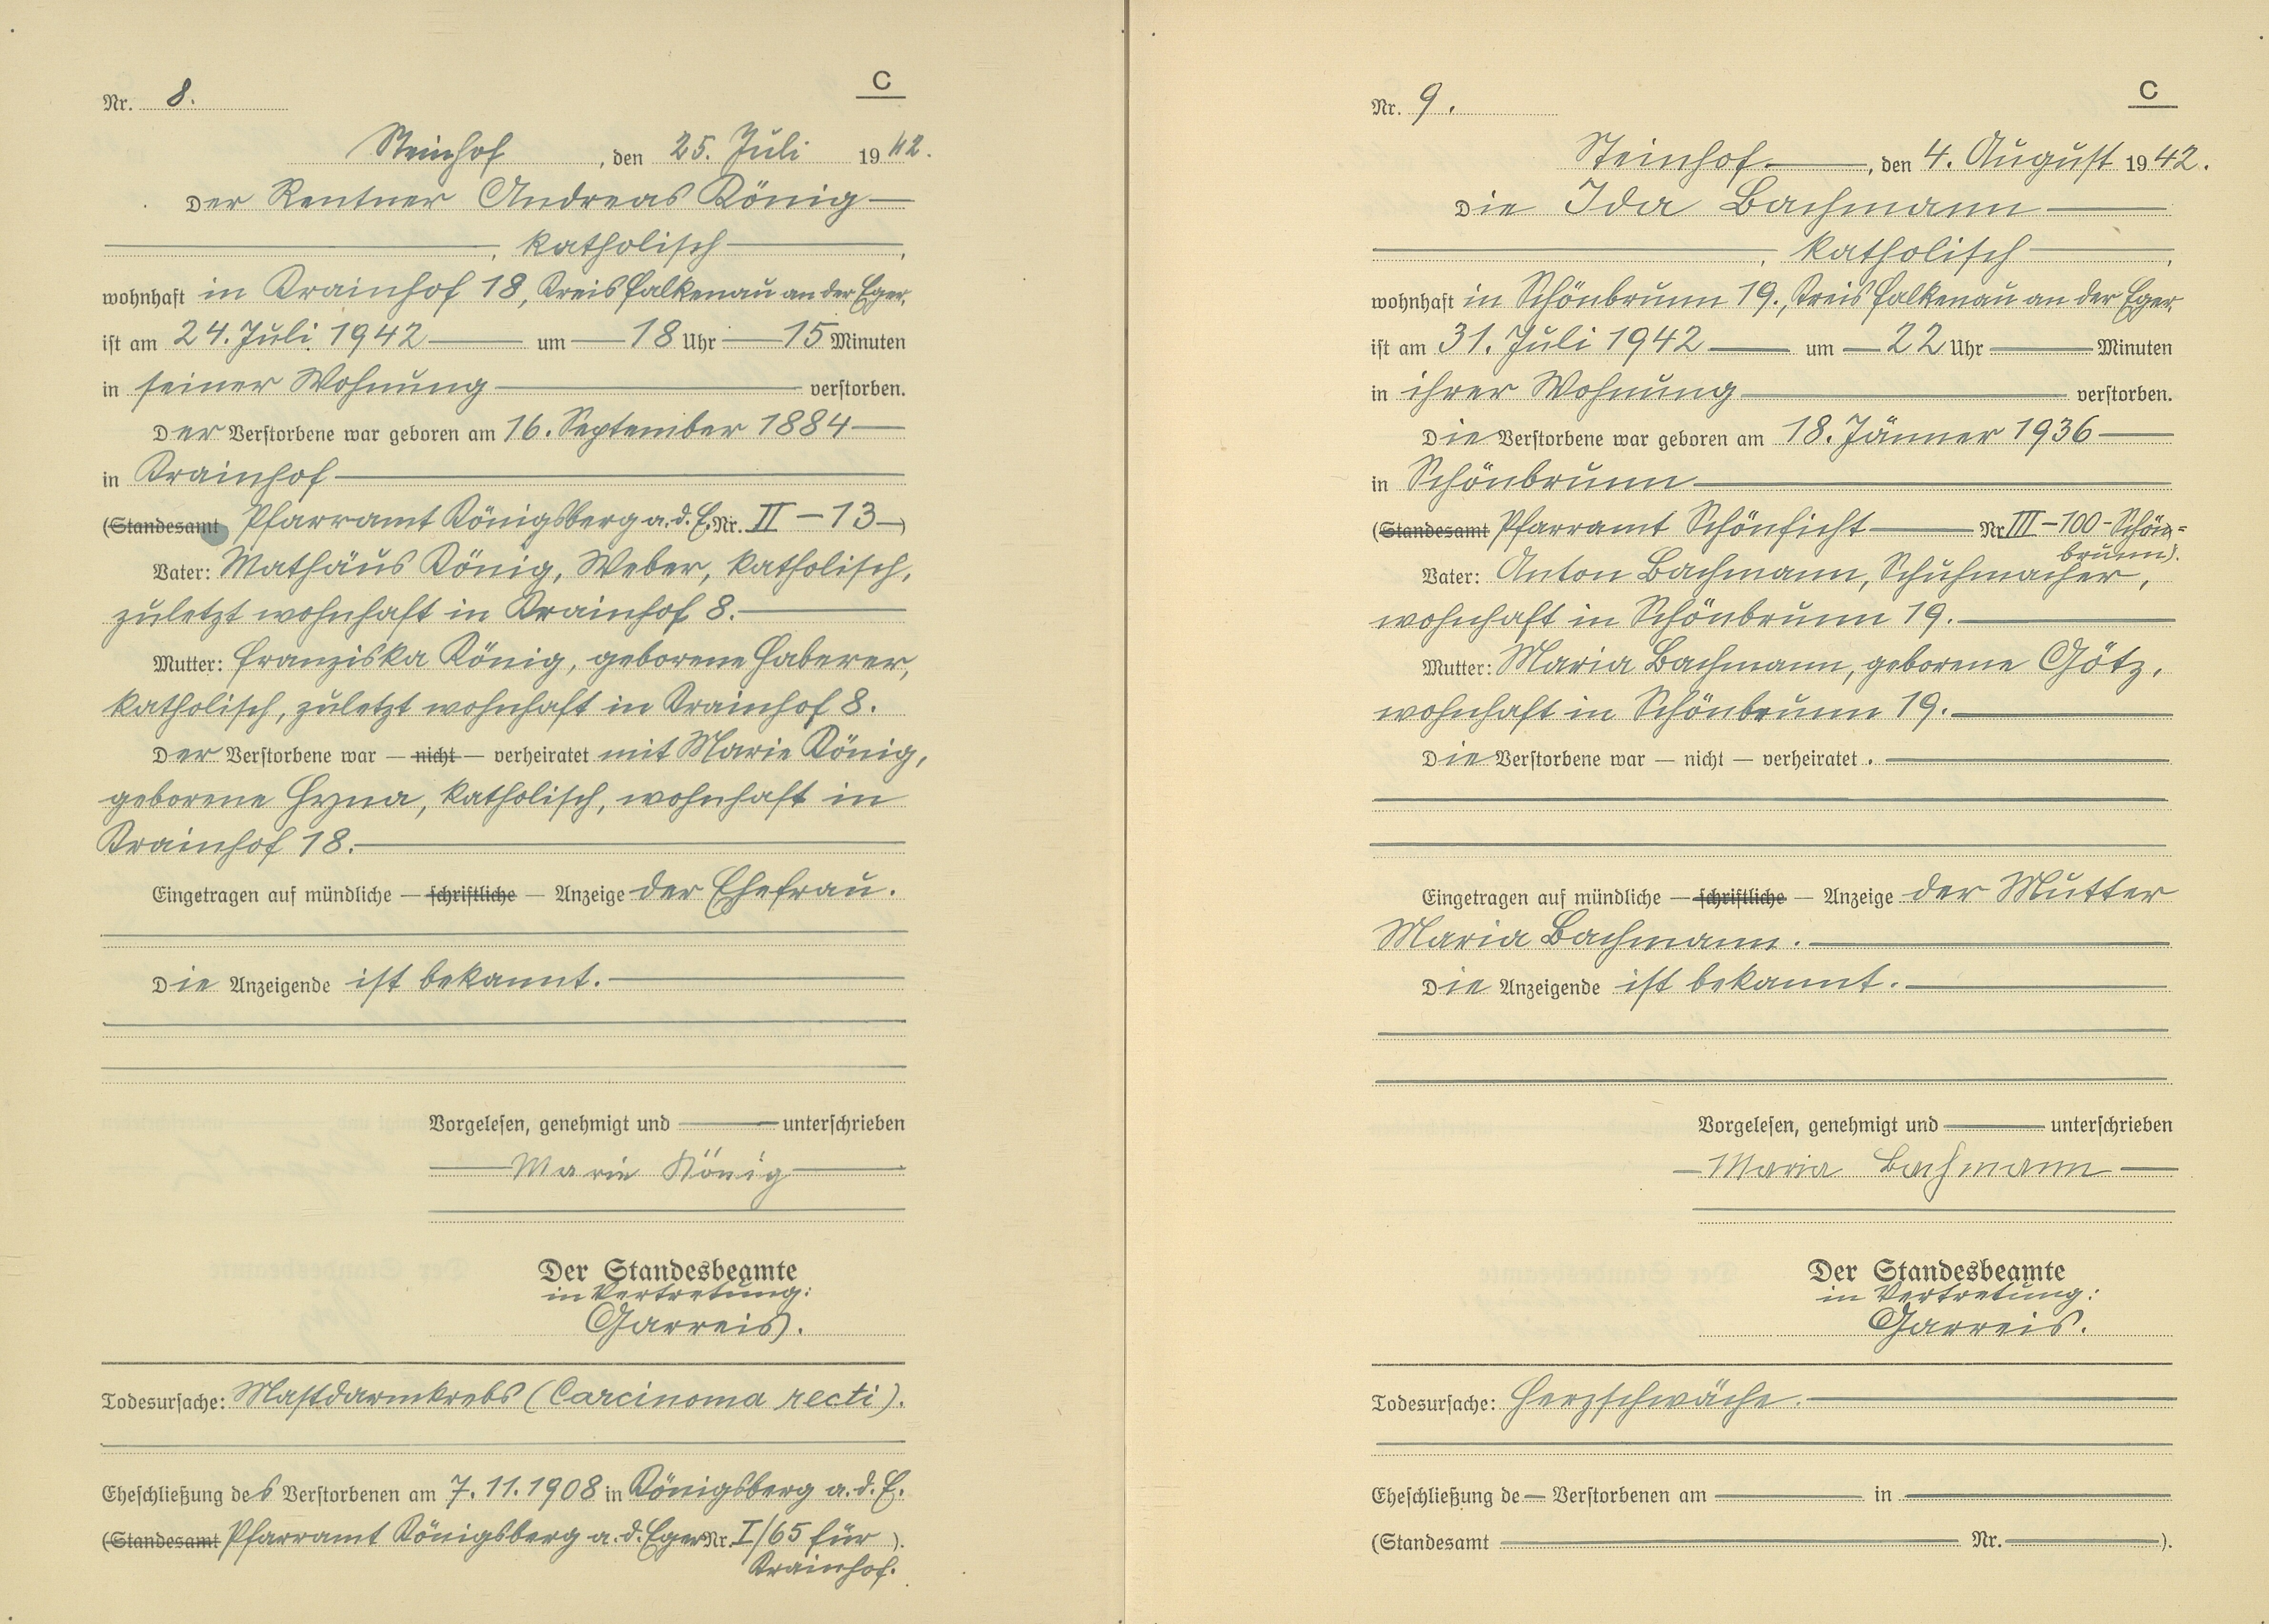 C
Nr. 8.
Steinhof, den 25. Juli 1942.
Der Rentner Andreas König
, katholisch,
wohnhaft in Krainhof 18, Kreis Falkenau an der Eger,
ist am 24. Juli 1942 um 18 Uhr 15 Minuten
in seiner Wohnung verstorben.
Der Verstorbene war geboren am 16. September 1884
in Krainhof
(Standesamt Pfarramt Königsberg a. d. E. Nr. II - 13 )
Vater: Mathäus König, Weber, katholisch,
zuletzt wohnhaft in Krainhof 8.
Mutter: Franziska König, geborene Haberer,
katholisch, zuletzt wohnhaft in Krainhof 8.
Der Verstorbene war — nicht — verheiratet mit Marie König,
geborene Hyna, katholisch, wohnhaft in
Krainhof 18.
Eingetragen auf mündliche — schriftliche — Anzeige der Ehefrau.
Die Anzeigende ist bekannt.
Vorgelesen, genehmigt und unterschrieben
Marie König
Der Standesbeamte
in Vertretung:
Garreis.
Todesursache: Mastdarmkrebs (Carcinoma recti).
Eheschließung des Verstorbenen am 7. 11. 1908 in Königsberg a. d. E.
(Standesamt Pfarramt Königsberg a. d. Eger Nr. I/65 für ).
Krainhof.
C
Nr. 9.
Steinhof, den 4. August 1942.
Die Ida Bachmann
, katholisch,
wohnhaft in Schönbrunn 19., Kreis Falkenau an der Eger,
ist am 31. Juli 1942 um 22 Uhr Minuten
in ihrer Wohnung verstorben.
Die Verstorbene war geboren am 18. Jänner 1936
in Schönbrunn
(Standesamt Pfarramt Schönficht Nr. III - 100 - Schön=
brunn).
Vater: Anton Bachmann, Schuhmacher,
wohnhaft in Schönbrunn 19.
Mutter: Maria Bachmann, geborene Götz,
wohnhaft in Schönbrunn 19.
Die Verstorbene war — nicht — verheiratet.
Eingetragen auf mündliche — schriftliche — Anzeige der Mutter
Maria Bachmann.
Die Anzeigende ist bekannt.
Vorgelesen, genehmigt und unterschrieben
Maria Bachmann
Der Standesbeamte
in Vertretung:
Garreis.
Todesursache: Herzschwäche.
Eheschließung de Verstorbenen am in
(Standesamt Nr. ).